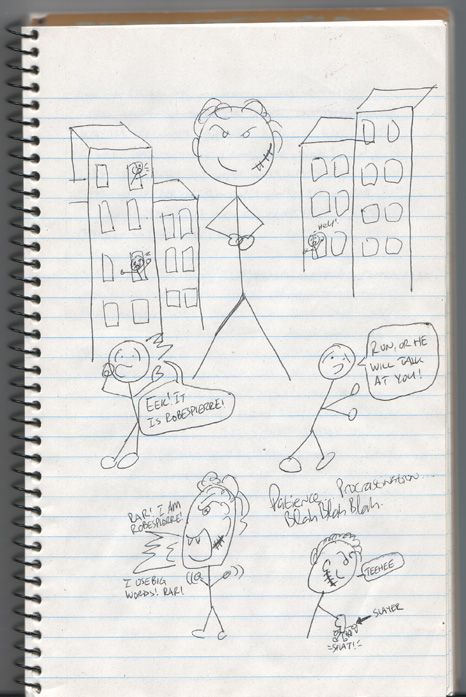 HELP!
EEK! IT
IS ROBESPIERRE!
RUN, OR HE
WILL TALK
AT YOU!
RAR! I AM
ROBESPIERRE!
I USE BIG
WORDS! RAR!
Patience... Procrastination...
Blah Blah Blah.
TEEHEE
SLAYER
=SPLAT!=